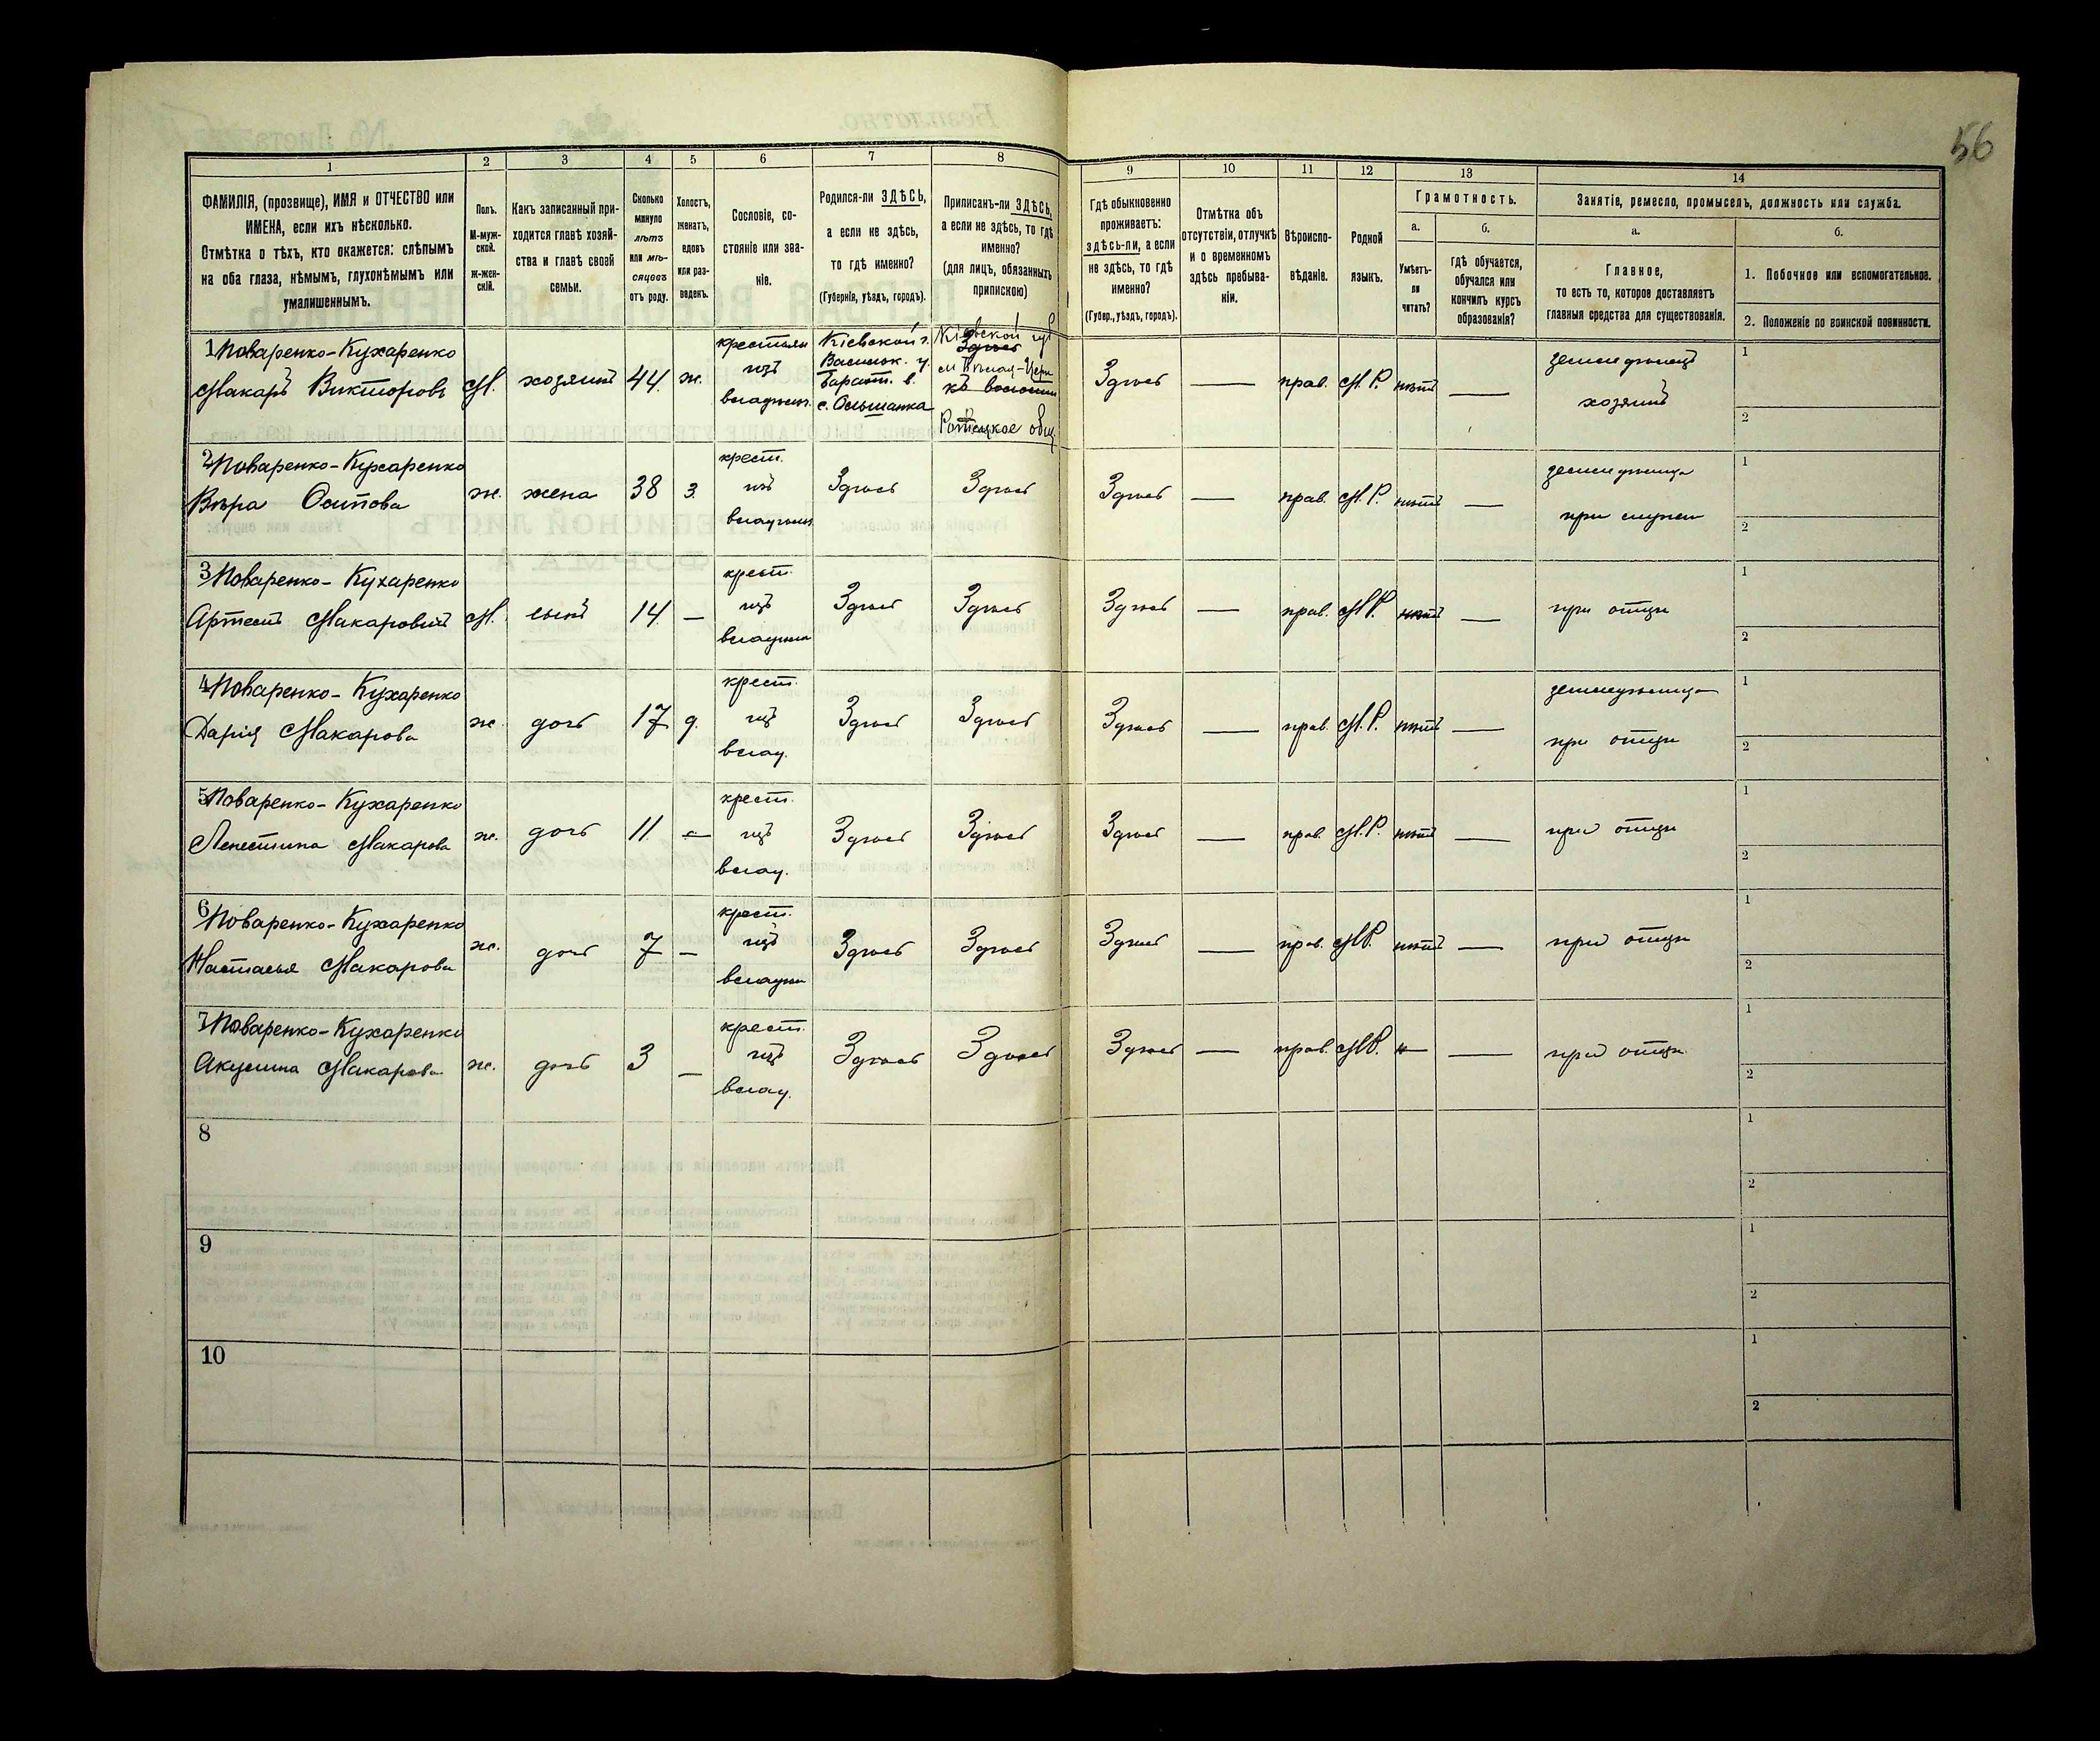 56
1 2 3 4 5 6 7 8 9 10 11 12 13 14
ФАМИЛІЯ, (прозвище), ИМЯ и ОТЧЕСТВО или
ИМЕНА, если ихъ нѣсколько.
Отмѣтка о тѣхъ, кто окажется: слѣпымъ
на оба глаза, нѣмымъ, глухонѣмымъ или
умалишеннымъ.
Полъ.
М-муж-
ской.
Ж-жен-
скій.
Какъ записанный при-
ходится главѣ хозяй-
ства и главѣ своей
семьи.
Сколько
минуло
лѣтъ
или мѣ-
сяцовъ
отъ роду.
Холостъ,
женатъ,
вдовъ
или раз-
веденъ.
Сословіе, со-
стояніе или зва-
ніе.
Родился-ли ЗДѢСЬ,
а если не здѣсь,
то гдѣ именно?
(Губернія, уѣздъ, городъ).
Приписанъ-ли ЗДѢСЬ,
а если не здѣсь, то гдѣ
именно?
(для лицъ, обязанныхъ
припискою)
Гдѣ обыкновенно
проживаетъ:
здѣсь-ли, а если
не здѣсь, то гдѣ
именно?
(Губер., уѣздъ, городъ).
Отмѣтка объ
отсутствіи, отлучкѣ
и о временномъ
здѣсь пребыва-
ніи.
Вѣроиспо-
вѣданіе.
Родной
языкъ.
Грамотность.
а.
Умѣетъ-
ли
читать?
б.
гдѣ обучается,
обучался или
кончилъ курсъ
образованія?
Занятіе, ремесло, промыселъ, должность или служба.
а.
Главное,
то есть то, которое доставляетъ
главныя средства для существованія.
б.
1. Побочное или вспомогательное.
2. Положеніе по воинской повинности.
1 Поваренко-Кухаренко
Макаръ Викторовъ
М.
хозяинъ
44
ж.
крестьян
изъ
владѣльч.
Кіевской г.
Васильк. у.
с. Ольшанка
Кіевской губ
Здѣсь
волости
общ.
Здѣсь
—
прав.
М. Р.
нѣтъ
—
земледѣлецъ
хозяинъ
1
2
2 Поваренко-Кухаренко
Вѣра Осипова
ж.
жена
38
з.
крест.
изъ
владѣльч.
Здѣсь
Здѣсь
Здѣсь
—
прав.
М. Р.
нѣтъ
—
земледѣлица
при мужѣ
1
2
3 Поваренко-Кухаренко
Артемъ Макаровъ
М.
сынъ
14
—
крест.
изъ
владѣльч
Здѣсь
Здѣсь
Здѣсь
—
прав.
М.Р.
нѣтъ
—
при отцѣ
1
2
4 Поваренко-Кухаренко
Дарія Макарова
ж.
дочь
17
д.
крест.
изъ
влад.
Здѣсь
Здѣсь
Здѣсь
—
прав.
М. Р.
нѣтъ
—
земледѣлица
при отцѣ
1
2
5 Поваренко-Кухаренко
Макарова
ж.
дочь
11
—
крест.
изъ
влад.
Здѣсь
Здѣсь
Здѣсь
—
прав.
М. Р.
нѣтъ
—
при отцѣ
1
2
6 Поваренко-Кухаренко
Настасья Макарова
ж.
дочь
7
—
крест.
изъ
владѣл
Здѣсь
Здѣсь
Здѣсь
—
прав.
М.Р.
нѣтъ
—
при отцѣ
1
2
7 Поваренко-Кухаренко
Акулина Макарова
ж.
дочь
3
—
крест.
изъ
влад.
Здѣсь
Здѣсь
Здѣсь
—
прав.
М.Р.
—
—
при отцѣ
1
2
8
1
2
9
1
2
10
1
2